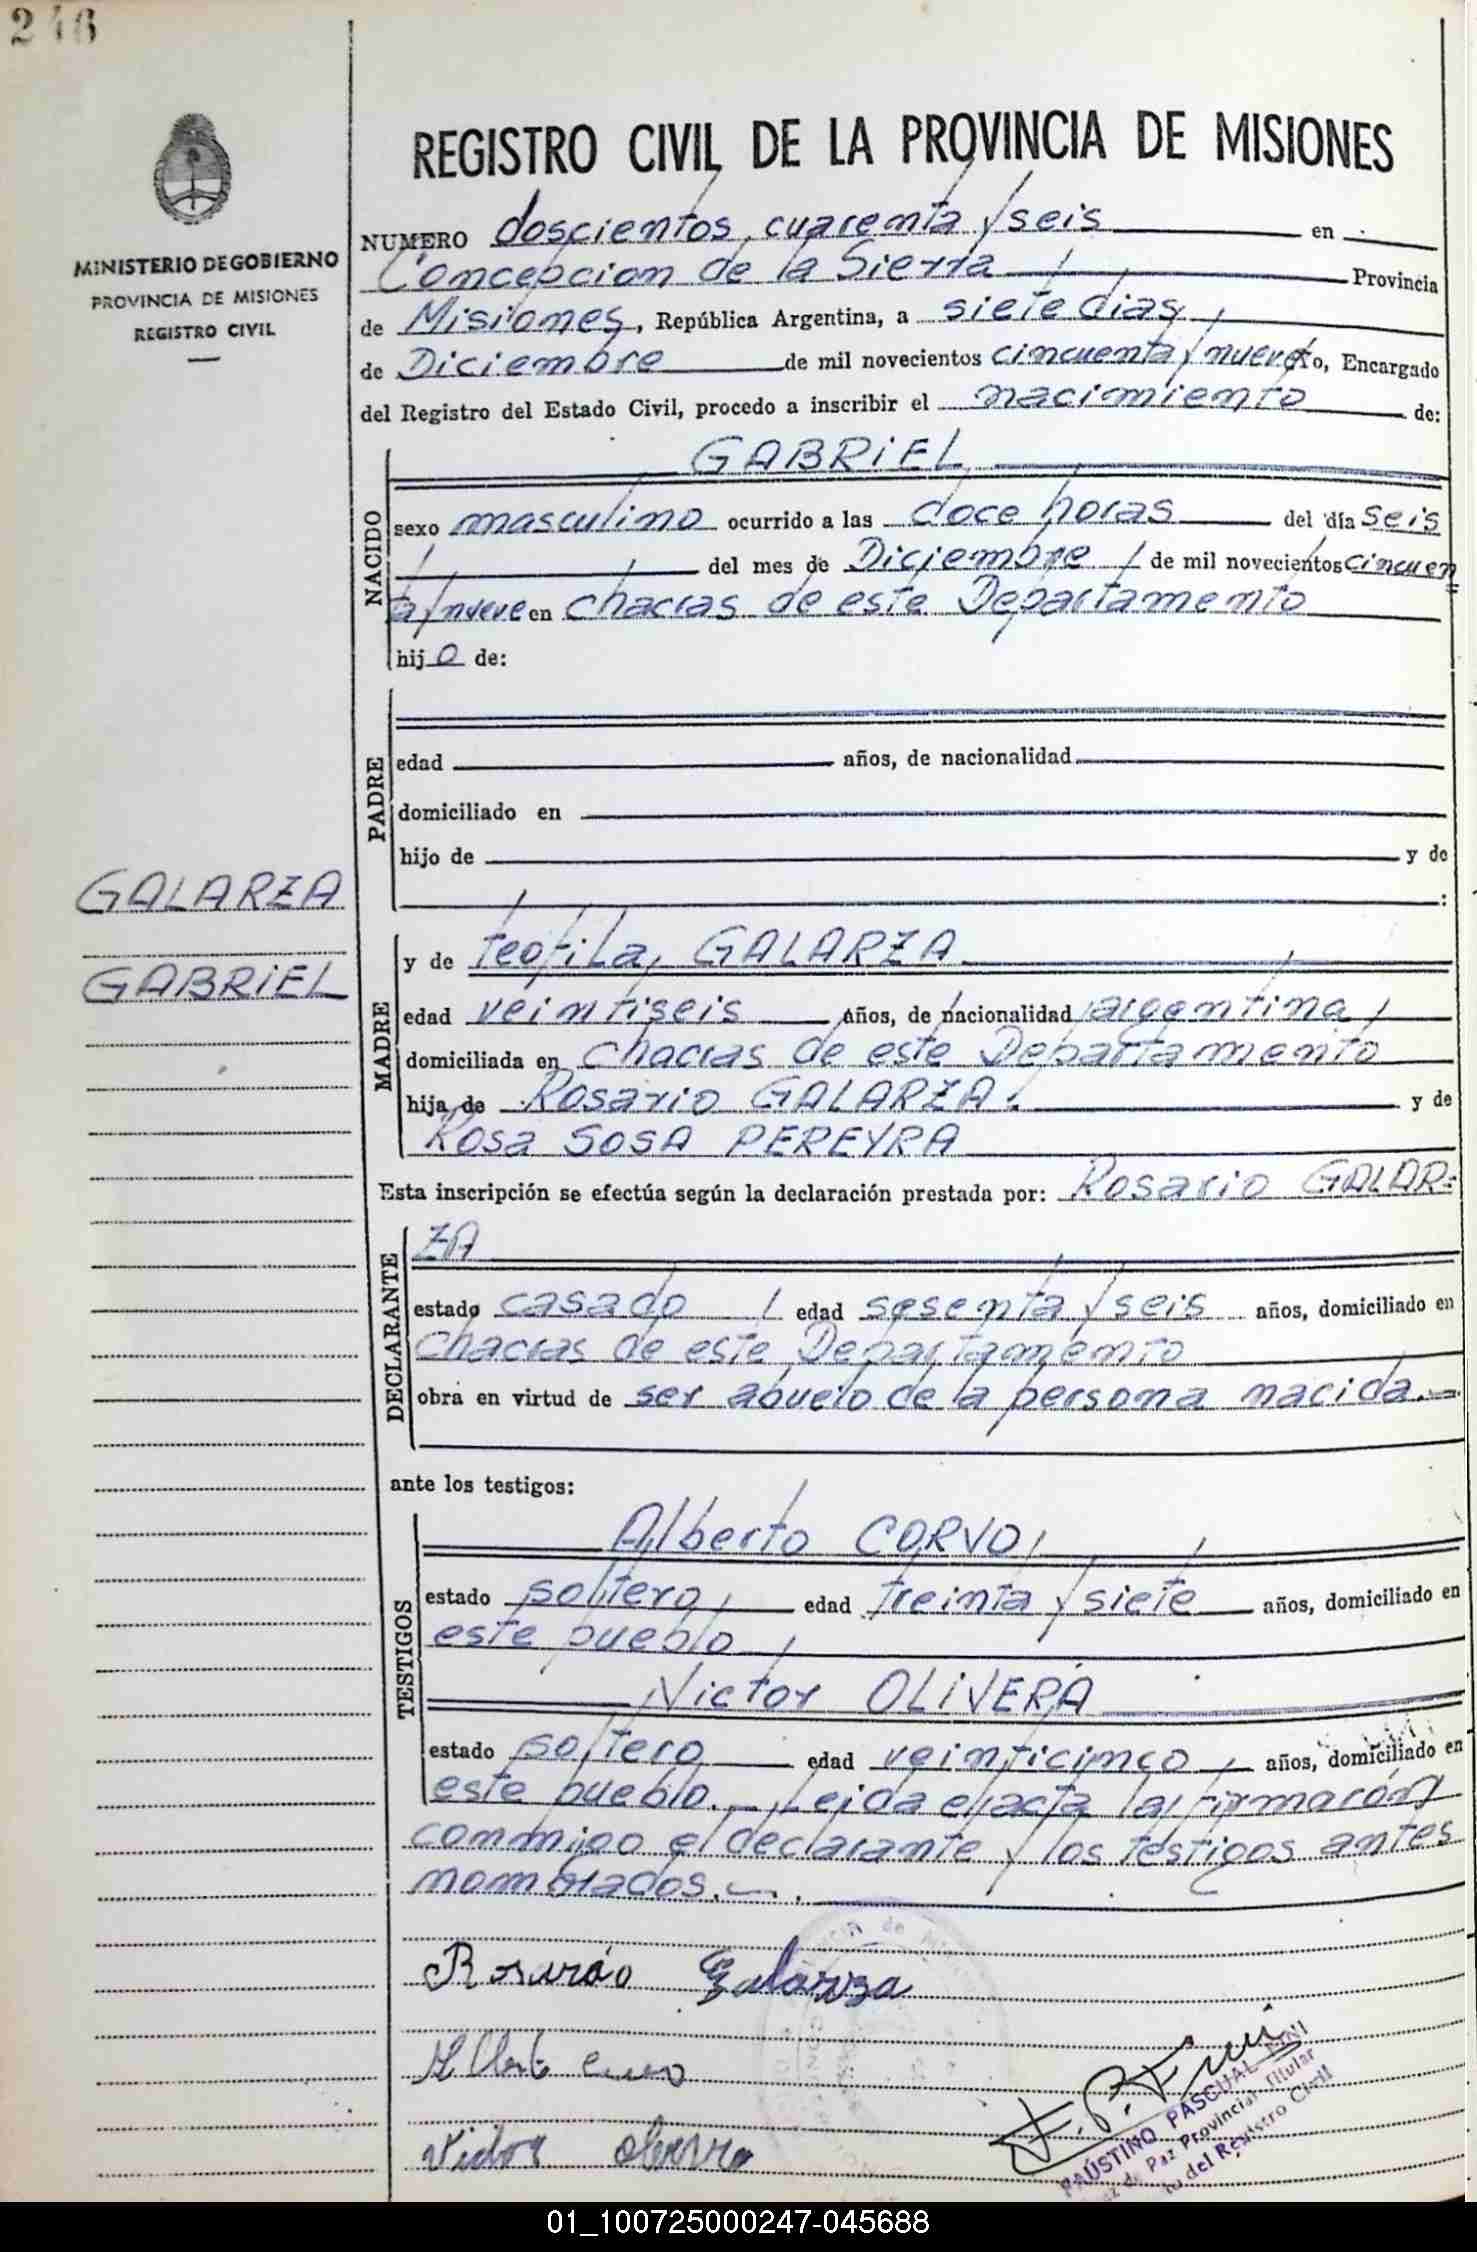 246
MINISTERIO DE GOBIERNO
PROVINCIA DE MISIONES
REGISTRO CIVIL
GALARZA
GABRIEL
REGISTRO CIVIL DE LA PROVINCIA DE MISIONES
NUMERO doscientos cuarenta y seis en
Concepcion de la Sierra Provincia
de Misiones, República Argentina, a siete dias
de Diciembre de mil novecientos cincuenta y nueve, Encargado
del Registro del Estado Civil, procedo a inscribir el nacimiento de:
NACIDO
GABRIEL
sexo masculino ocurrido a las doce horas del día seis
del mes de Diciembre de mil novecientos cincuen
ta y nueve en chacras de este Departamento
hijo de:
PADRE
edad años, de nacionalidad
domiciliado en
hijo de y de
:
MADRE
y de Teofila, GALARZA
edad veintiseis años, de nacionalidad argentina,
domiciliada en chacras de este Departamento
hija de Rosario GALARZA. y de
Rosa SOSA PEREYRA
Esta inscripción se efectúa según la declaración prestada por: Rosario GALAR=
DECLARANTE
ZA
estado casado edad sesenta y seis años, domiciliado en
chacras de este Departamento
obra en virtud de ser abuelo de la persona nacida.
ante los testigos:
TESTIGOS
Alberto CORVO,
estado soltero, edad treinta y siete años, domiciliado en
este pueblo,
Victor OLIVERA
estado soltero edad veinticinco, años, domiciliado en
este pueblo. Leida el acta la firmarón
conmigo el declarante y los testigos antes
nombrados.
Rosario Galarza
Victor Olivera
F. P. Fini
FAUSTINO PASCUAL FINI
Juez de Paz Provincial Titular
del Registro Civil
01_100725000247-045688